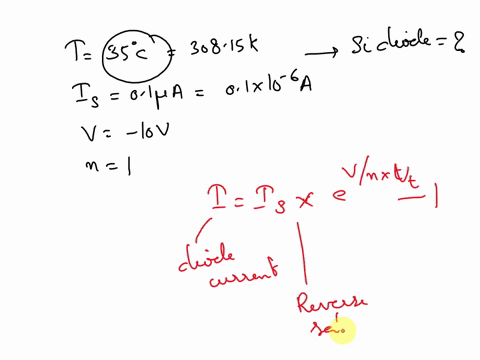 T = 35°C = 308.15k → Si diode = ?
I_s = 0.1μA = 0.1×10^-6 A
V = -10V
n = 1
I = I_s × e^V/n×V_t - 1
diode current
Reverse